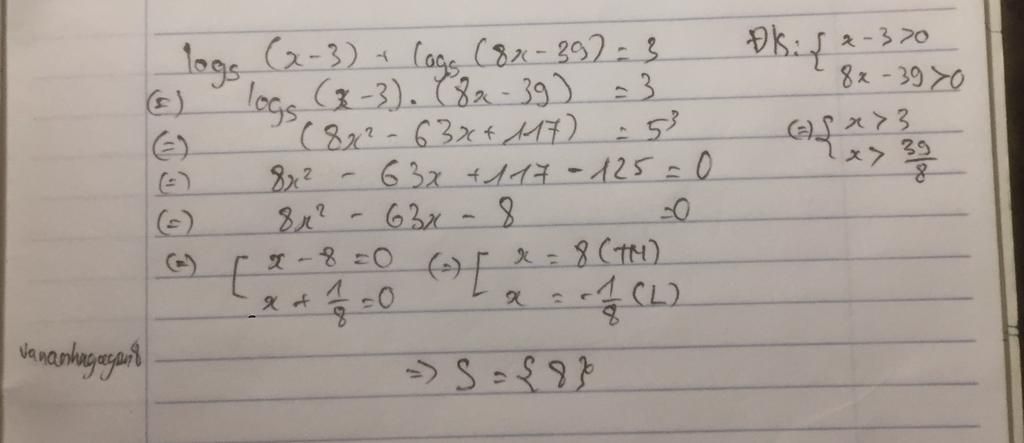 log₅ (x-3) + log₅ (8x-39) = 3 ĐK: { x-3>0
8x-39>0
(=) log₅ (x-3).(8x-39) = 3
(=) (8x² - 63x + 117) = 5³ (=) { x > 3
x > 39/8
(=) 8x² - 63x + 117 - 125 = 0
(=) 8x² - 63x - 8 =0
(=) [ x - 8 = 0 (=) [ x = 8 (TM)
x + 1/8 = 0 x = -1/8 (L)
=> S = {8}